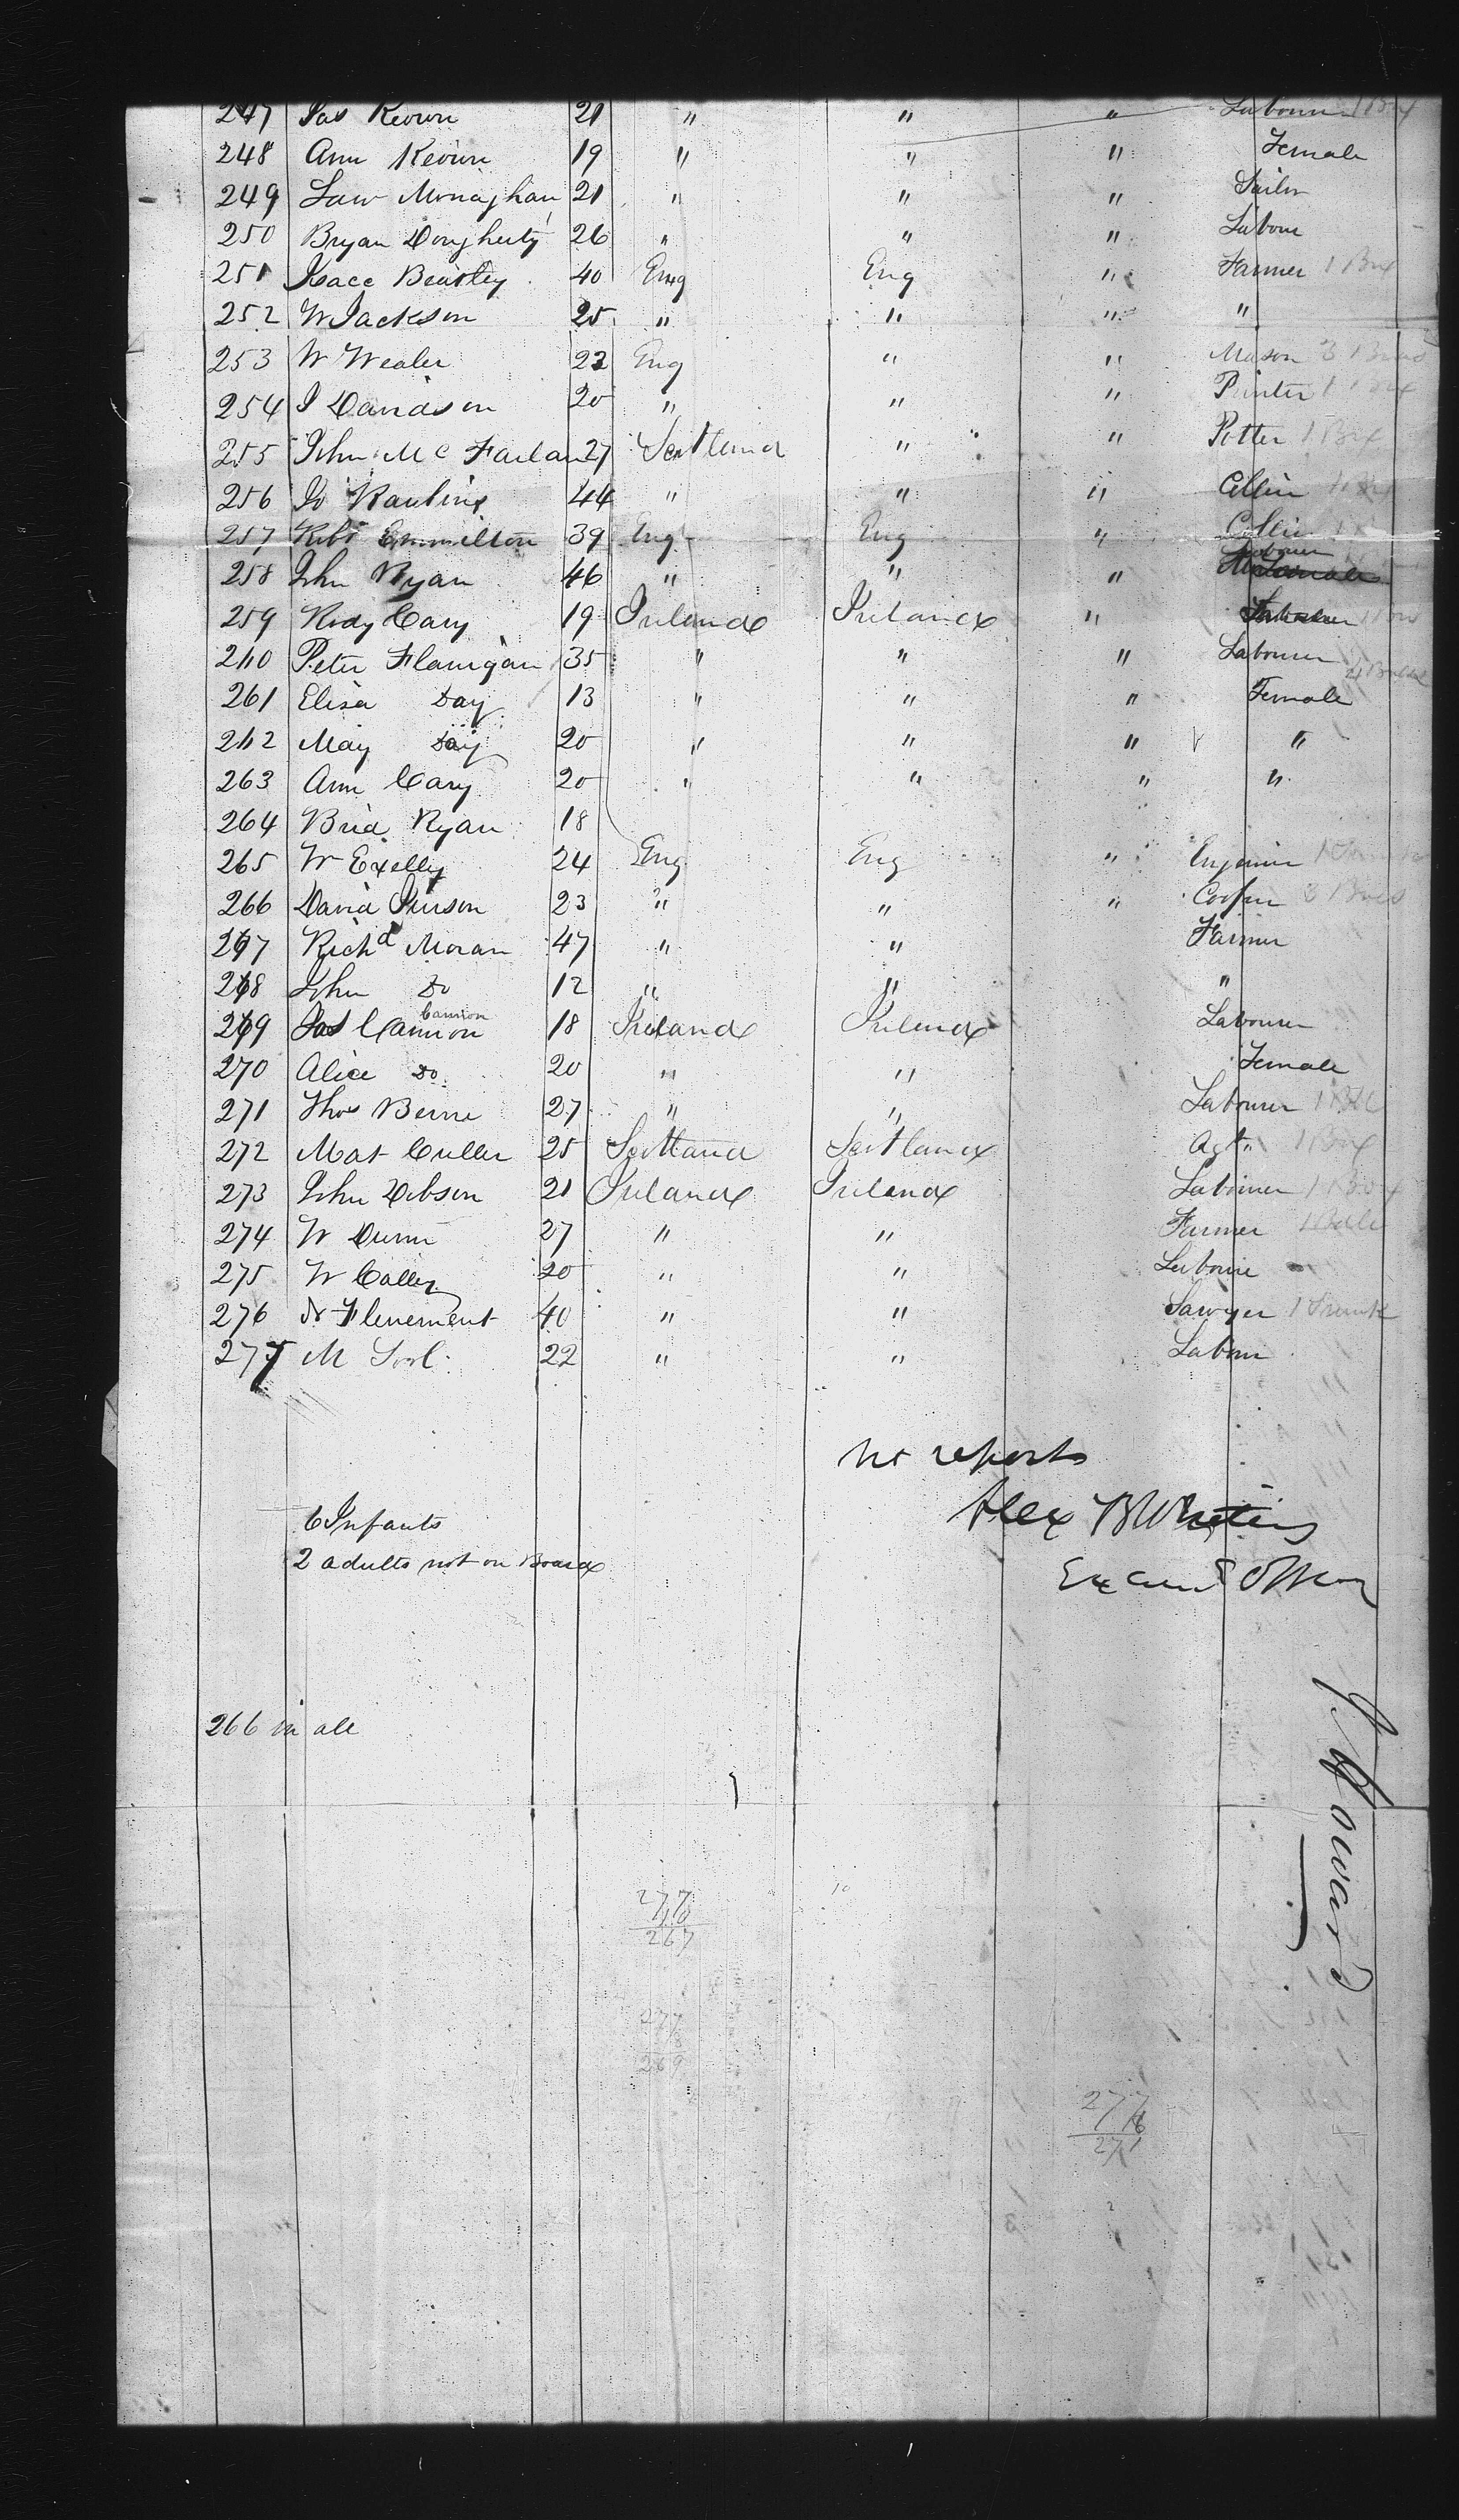 247 Jas Keown 21 " " " Labourer 1 Box
248 Ann Keown 19 " " " Female
249 Law Monaghan 21 " " " Sailor
250 Bryan Dougherty 26 " " " Laboure
251 Isacc Beasley 40 Eng Eng " Farmer 1 Box
252 W Jackson 25 " " " "
253 W Wealer 23 Eng " " Mason 3 Boxes
254 J Davidson 20 " " " Printer 1 Box
255 John Mc Farlan 27 Scotland " " Potter 1 Box
256 Jo 44 " " " Collier
257 Robt Emmilton 39 Eng Eng " Collier
258 John Ryan 46 " " " Labourer
259 Rody Cary 19 Ireland Ireland "
260 Peter Flanigan 35 " " " Labourer
261 Elisa Day 13 " " " Female
262 May Day 20 " " " "
263 Ann Cary 20 " " " "
264 Brid Ryan 18
265 W Exelley 24 Eng Eng " Enginier
266 David 23 " " " Cooper 3 Boxes
267 Richd Moran 47 " " Farmer
268 John Do 12 " " "
269 Jas Cannion Cannion 18 Ireland Ireland Labourer
270 Alice Do 20 " " Female
271 Thos Berne 27 " " Labourer
272 Mat Culler 25 Scotland Scotland Agt. 1 Box
273 John Dobson 21 Ireland Ireland Labourer 1 Box
274 W Dunn 27 " " Farmer 1 Bale
275 W Calley 20 " " Laboure
276 Flenement 40 " " Sawyer 1 Trunk
277 M 22 " " Labour
no reports
Alex B
6 Infants
2 adults not on Board
266 in all
J. Howard
277
10
267
277
8
269
277
6
271